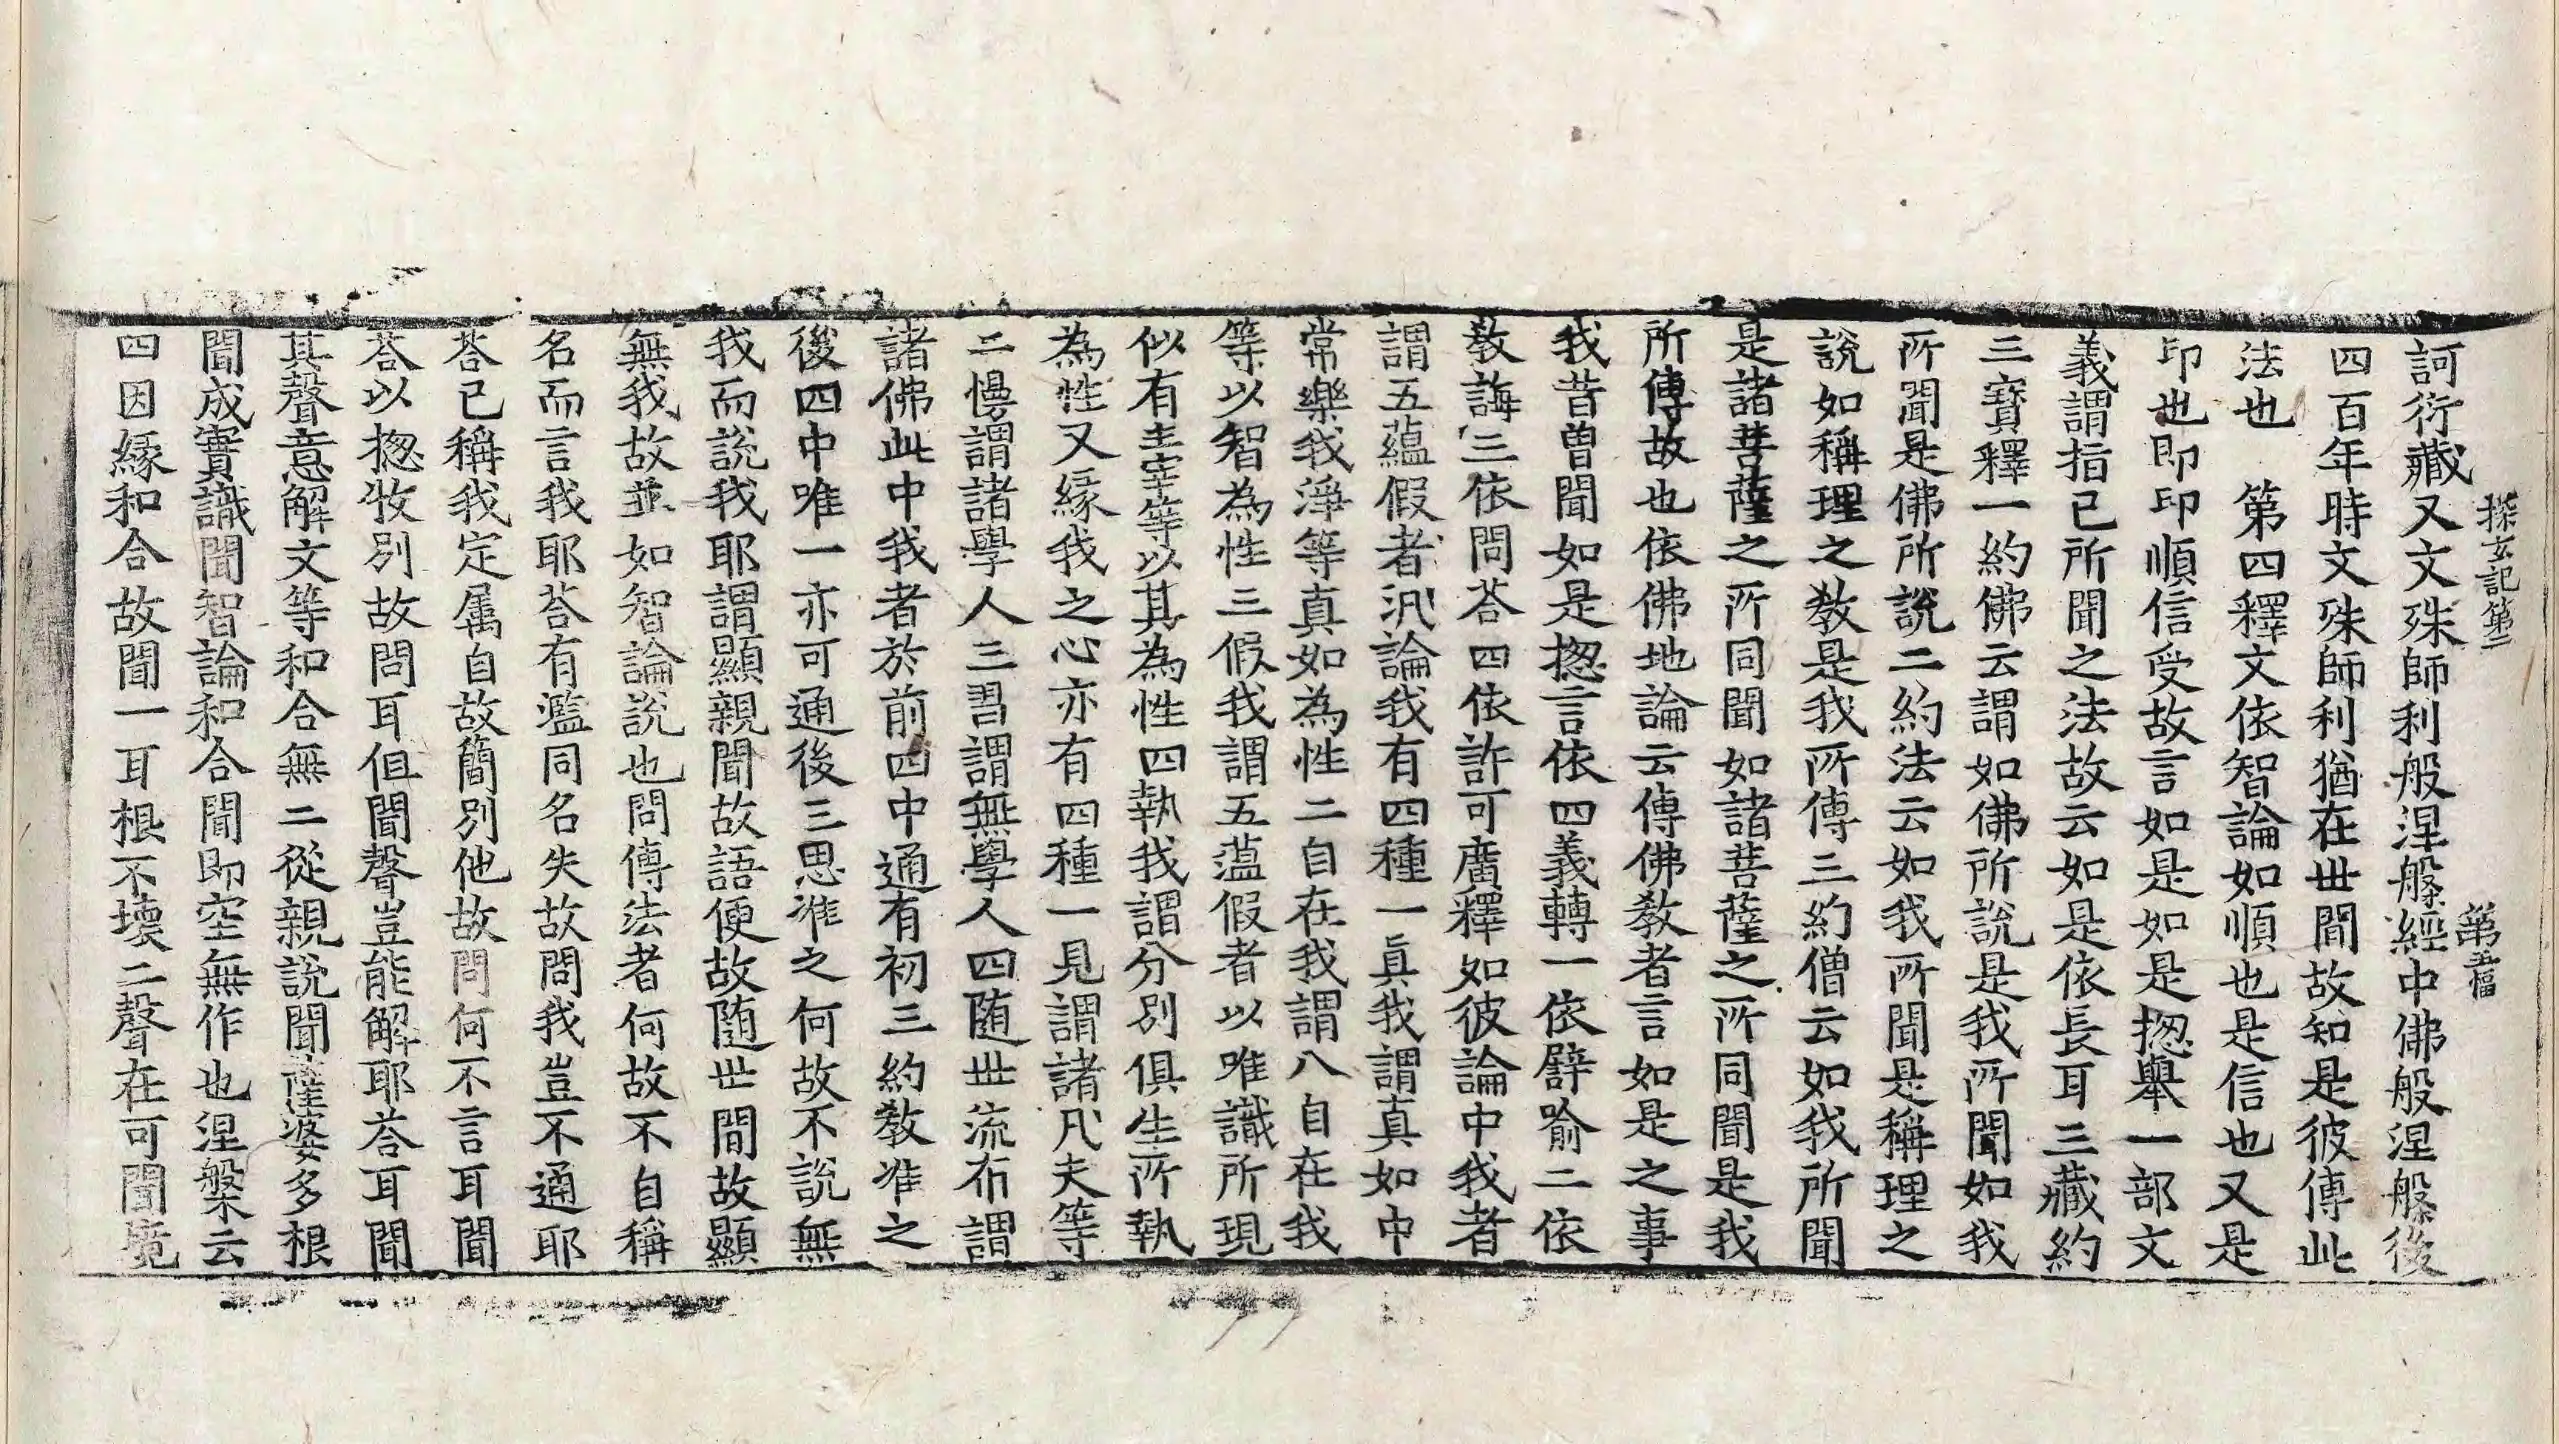 探玄記第二 第五幅
訶衍藏又文殊師利般涅槃經中佛般涅槃後
四百年時文殊師利猶在世間故知是彼傳此
法也 第四釋文依智論如順也是信也又是
印也即印順信受故言如是如是揔舉一部文
義謂指已所聞之法故云如是依長耳三藏約
三寶釋一約佛云謂如佛所說是我所聞如我
所聞是佛所說二約法云如我所聞是稱理之
說如稱理之教是我所傳三約僧云如我所聞
是諸菩薩之所同聞如諸菩薩之所同聞是我
所傳故也依佛地論云傳佛教者言如是之事
我昔曾聞如是揔言依四義轉一依譬喻二依
教誨三依問荅四依許可廣釋如彼論中我者
謂五蘊假者汎論我有四種一真我謂真如中
常樂我淨等真如為性二自在我謂八自在我
等以智為性三假我謂五蕰假者以唯識所現
似有主宰等以其為性四執我謂分別俱生所執
為性又緣我之心亦有四種一見謂諸凡夫等
二慢謂諸學人三習謂無學人四随世流布謂
諸佛此中我者於前四中通有初三約教准之
後四中唯一亦可通後三思准之何故不說無
我而說我耶謂顯親聞故語便故随世間故顯
無我故並如智論說也問傳法者何故不自稱
名而言我耶荅有濫同名失故問我豈不通耶
荅已稱我定属自故簡別他故問何不言耳聞
荅以揔收別故問耳但聞聲豈能解耶荅耳聞
其聲意解文等和合無二從親說聞薩婆多根
聞成實識聞智論和合聞即空無作也涅槃云
四因緣和合故聞一耳根不壞二聲在可聞境